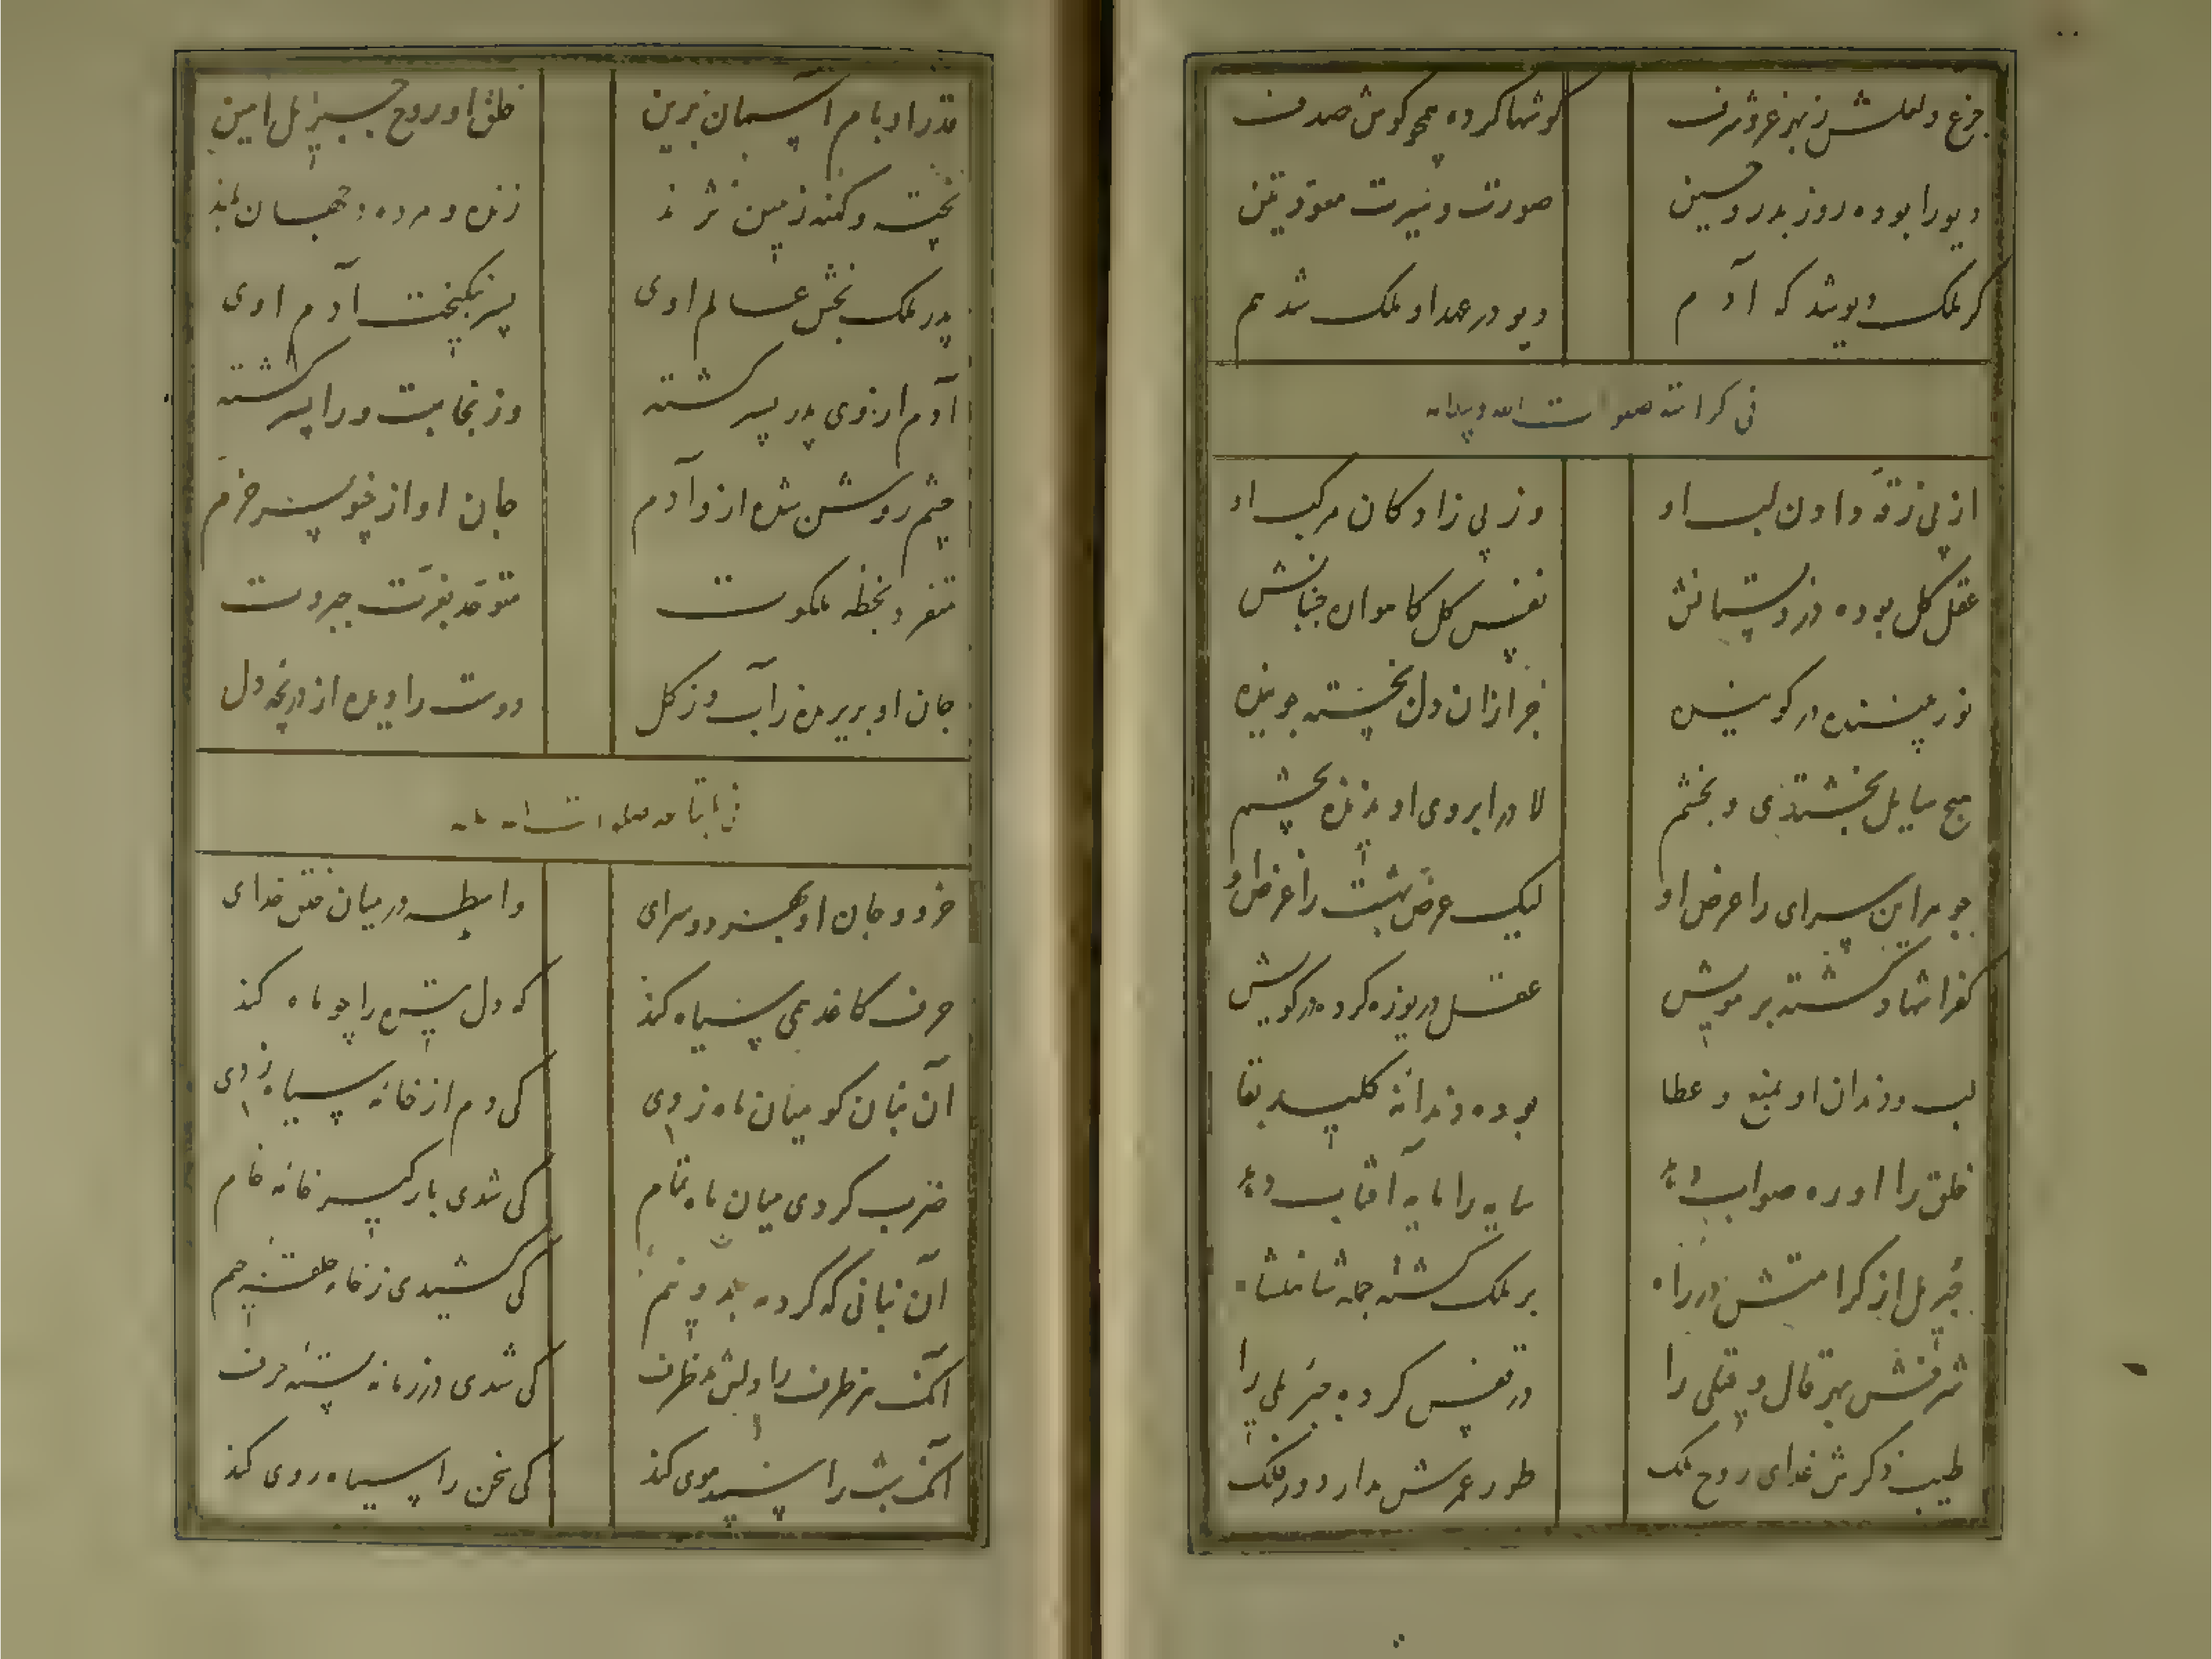 جزع و لعلش ز بهر عز و شرف گوشها کرده همچو گوش صدف
دیو را بوده روز بدر و حنین صورت و سیرت معوذتین
گر ملک دیو شد گه آدم دیو در عهد او ملک شد هم
فی کرامته صلوات الله و سلامه
از پی زقه دادن لب او وز پی زادگان مرکب او
عقل کل بوده در دبستانش نفس کل گاهواره جنبانش
نور بیننده در کو بنده جز از آن دل نجسته جوینده
هیچ سایل بخشندی و بخشم لا در ابروی او ندیده بچشم
جوهر این سرای را عرض او لیک عرض بهشت را غرض او
کفر ایشا کشته بر مویش عقل دریوزه کرده در کویش
لب و دندان او بمنع و عطا بوده دندانه کلید بقا
خلق را او ره صواب دهد سایه را مایه آفتاب دهد
جبریل از کرامتش در راه بر ملک گشته جمله شاهنشاه
شرفش بهر قال و قیلی را در قفس کرده جبرئیلی را
طیب ذکرش غذای روح ملک طور عرش مدار دور فلک
قدر او بام آسمان برین خلق او روح جبرئیل امین
بخت و کنه زمین نژند زنده و مرده جهان بلند
پدر ملک بخش عالم اوی پسر نیکبخت آدم اوی
آدم از وی پدر پسر گشته وز نجابت ورا پسر گشته
چشم روشن شده از و آدم جان او از خو پسر خرم
متفرد بخطه ملکوت متوحد بعزت جبروت
جان او بر پریده ز آب و ز گل دوست را دیده از دریچه دل
فی اتباعه صلوات الله علیه
خرد و جان او بهر دو سرای واسطه در میان خلق خدای
حرف کاغذ همی سیاه کند که دل تیره را چو ماه کند
آن بنان کو میان ماه زدی کی دم از خانه سیاه زدی
ضرب کردی میان ماه تمام کی شدی بارگیر خانه خام
آن بنانی که کرد مه بدو نیم کی کشیدی ز خامه حلقه جیم
آنک هر ظرف را ولش ظرف کی شدی در زمانه بسته حرف
آنک شب را سپید موی کند کی سخن را سیاه روی کند